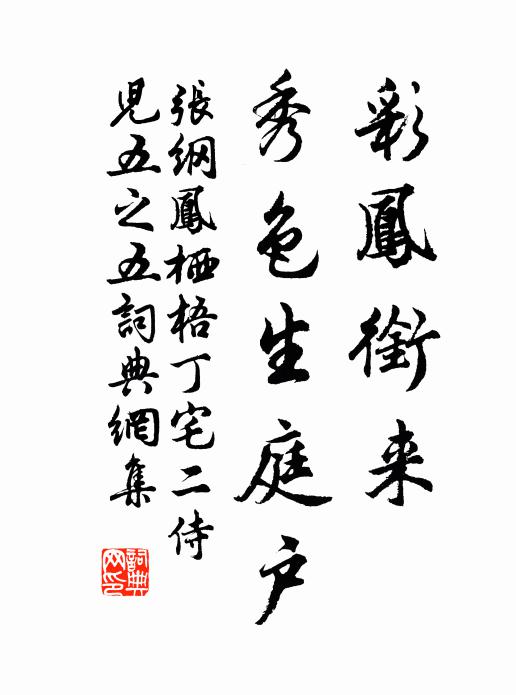 彩鳳銜来
秀色生庭户
張綱鳳栖梧丁宅二侍
児五之五詞典網集
詞典网印